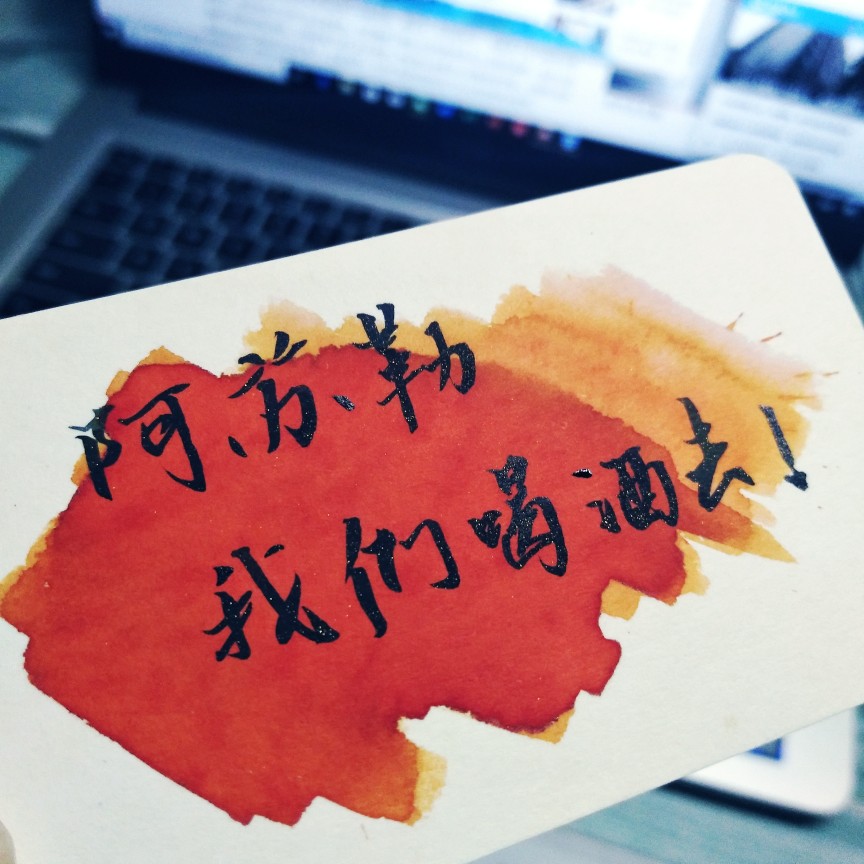 阿苏勒
我们喝酒去!